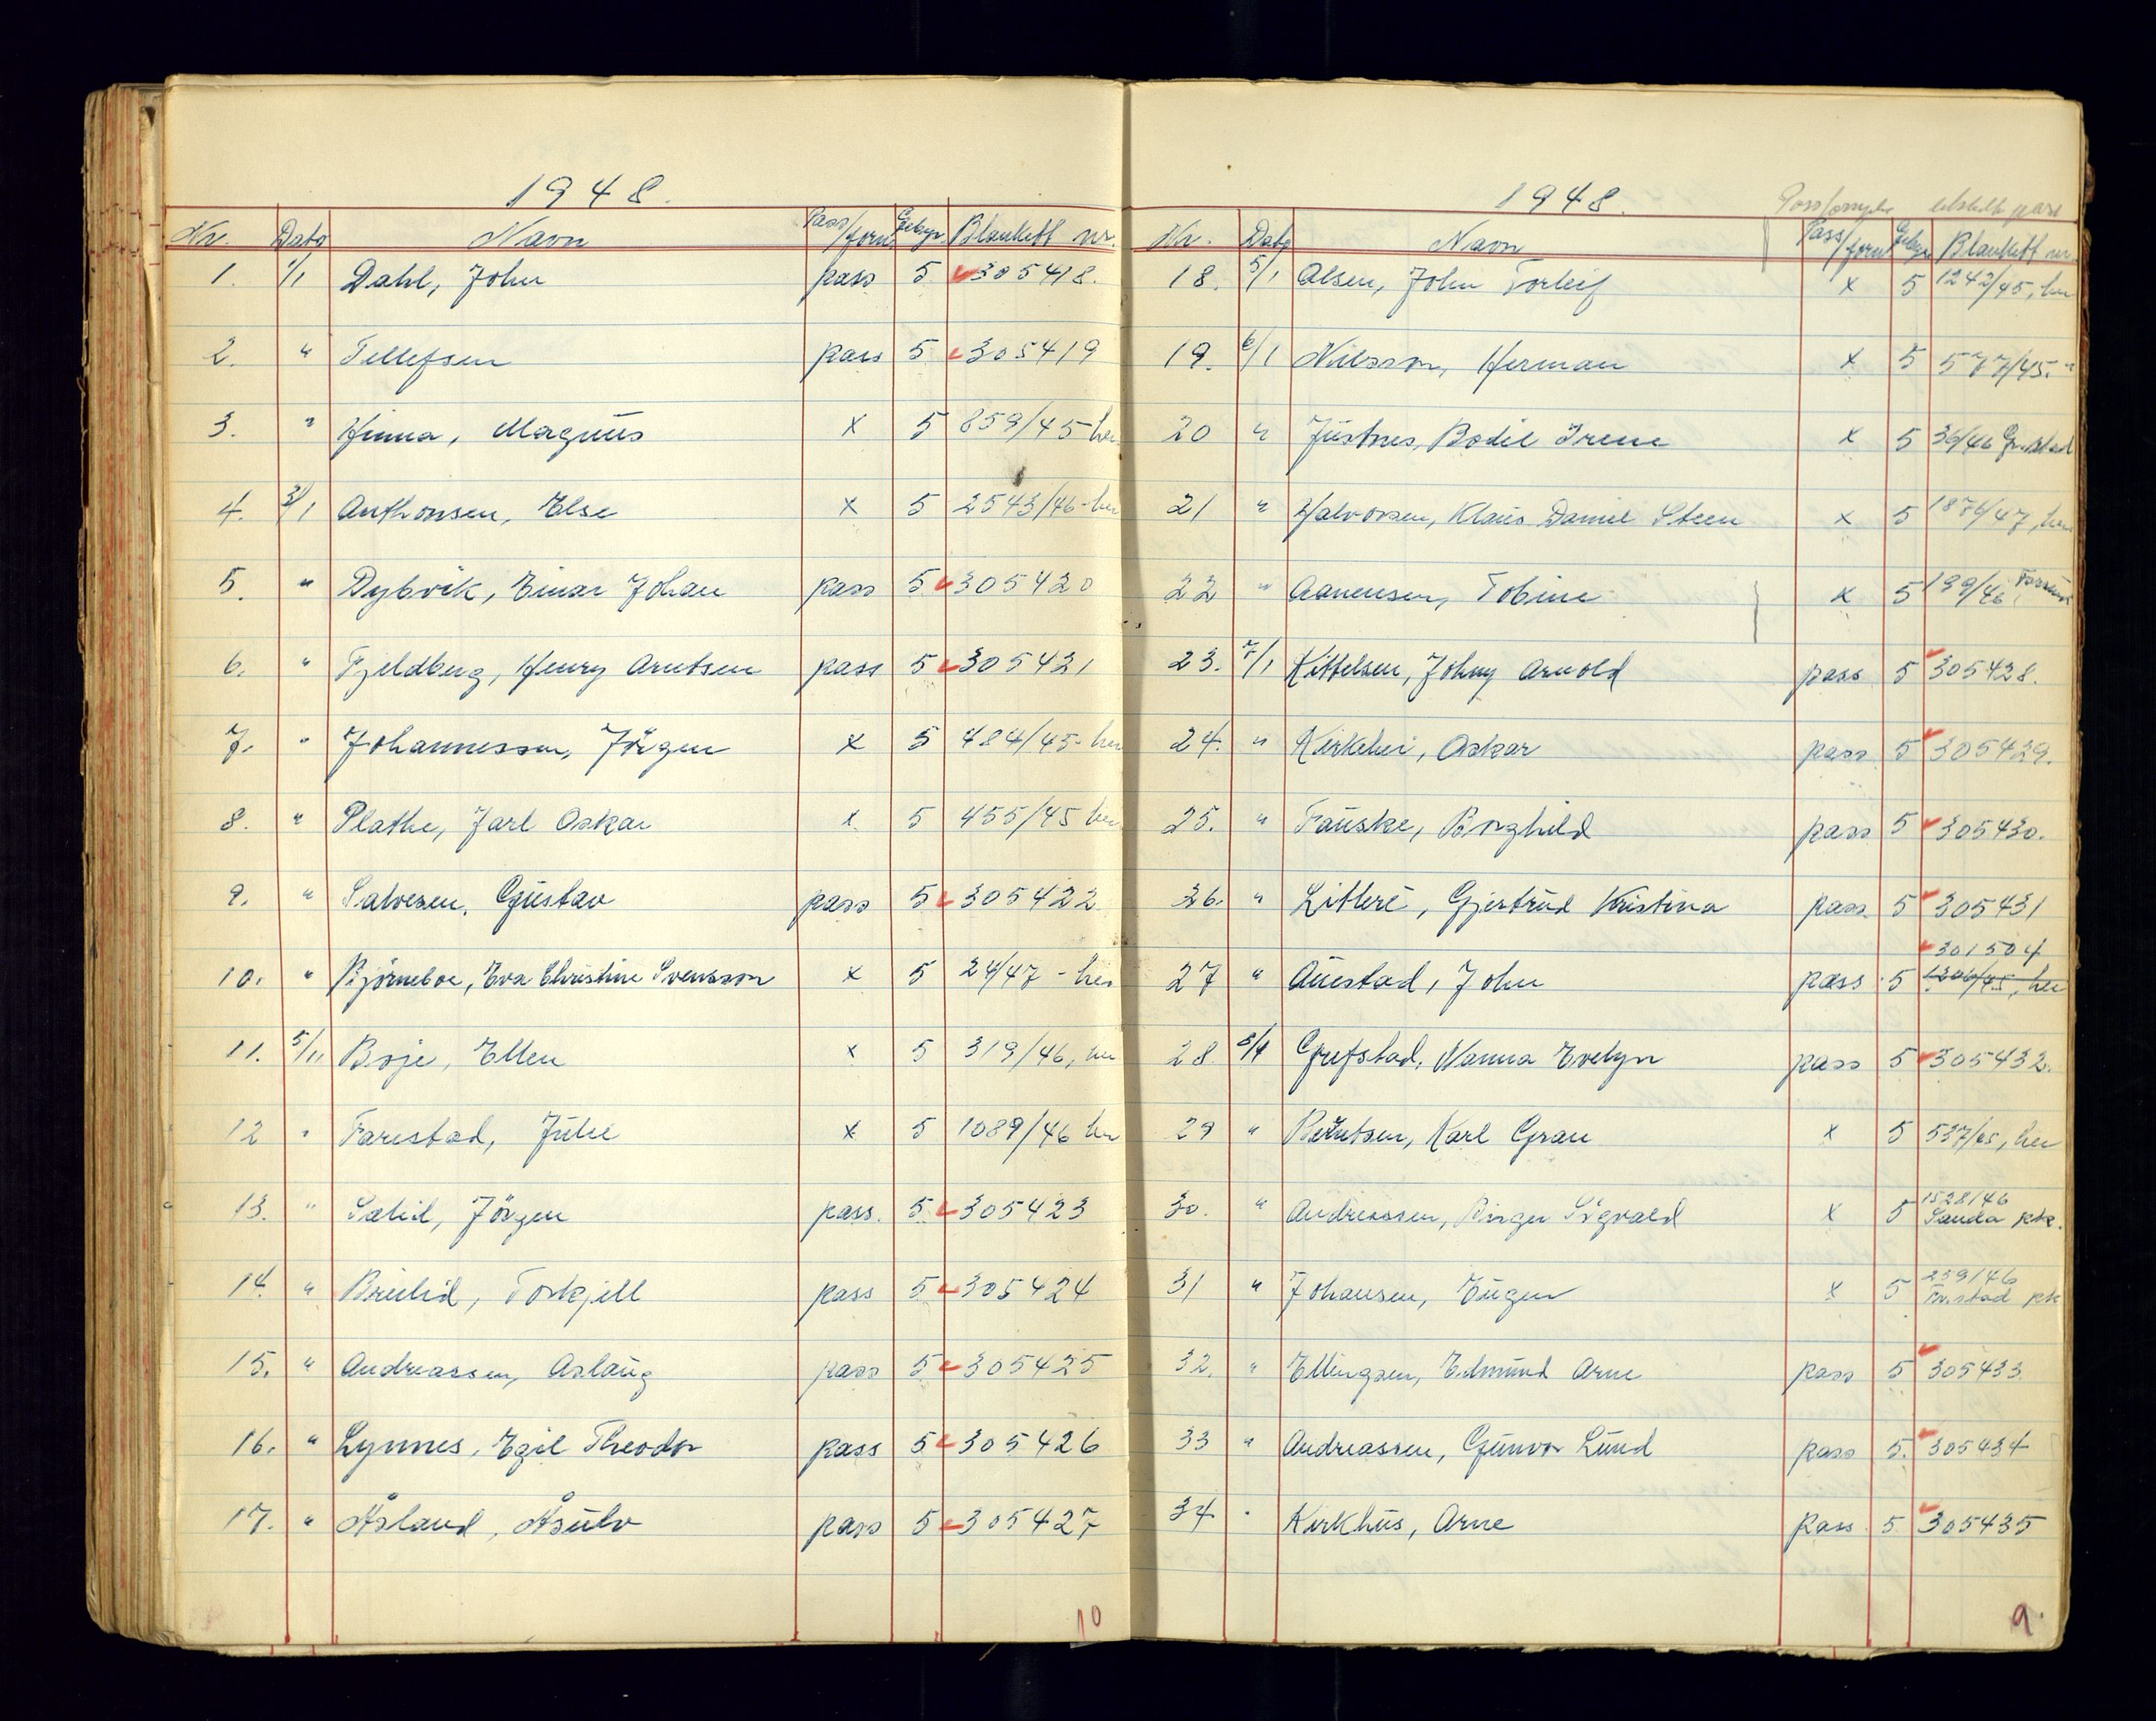 1948.
Nr. Dato Navn Pass/forn. Gebyr. Blankett nr.
1. 1/1 Dahl, John pass 5 305418.
2. " Tellefsen pass 5 305419
3. " Hinna, Magnus x 5 859/45 her
4. 3/1 Anthonsen, Else x 5 2543/46 - her
5. " Dybvik, Einar Johan pass 5 305420
6. " Fjeldberg, Henry Arntsen pass 5 305421
7. " Johannessen, Jörgen x 5 484/45 - her
8. " Plathe, Jarl Oskar x 5 455/45 her
9. " Salvesen, Gustav pass 5 305422
10. " Björneboe, Eva Christine Svensson x 5 24/47 - her
11. 5/11 Boje, Ellen x 5 319/46, her
12 " Farestad, Julie x 5 1089/46 her
13. " Jörgen pass. 5 305423
14. " Torkjell pass 5 305424
15. " Andreassen, Aslaug pass 5 305425
16. " Lynnes, Egil Theodor pass 5 305426
17. " Åsland, Åsulv pass 5 305427
10
1948. utstedt pass
Nr. Dato Navn Pass/forn. Gebyr Blankett nr.
18. 5/1 Olsen, John Torleif x 5 1242/45, her
19. 6/1 Nilsson, Herman x 5 577/45. "
20 " Justnes, Bodil Irene x 5 36/46 Gr.stad
21 " Halvorsen, Klaus Daniel Steen x 5 1876/47, her
22 " Aanensen, Tobine x 5 199/46
23. 7/1 Kittelsen, Johny Arnold pass 5 305428.
24. " Kirkehei, Oskar pass 5 305429.
25. " Fauske, Borghild pass 5 305430.
26. " Litleré, Gjertrud Kristina pass 5 305431
301504
27 " Auestad, John pass 5 1306/45, her
28 8/1 Grefstad, Nanna Evelyn pass 5 305432.
29 " Berntsen, Karl Gran x 5 537/45, her
30. " Andreassen, Birger Sigvald x 5 1528/46
Sauda pk.
31 " Johansen, Eugen x 5 239/46
32. " Ellingsen, Edmund Arne pass 5 305433.
33 " Andreassen, Gunvor Lund pass 5. 305434
34 " Kirkhus, Arne pass 5 305435
9.